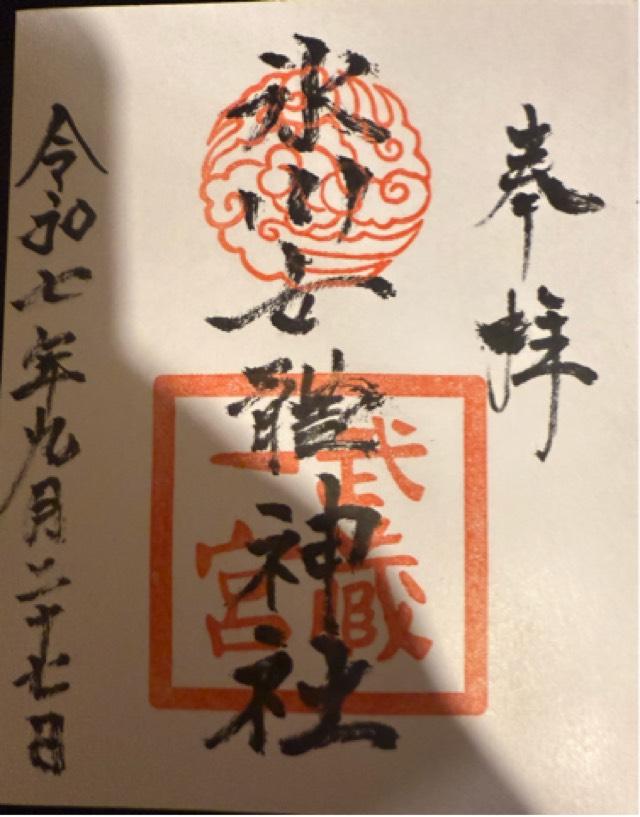 奉拝
氷川女體神社
武蔵
一宮
令和七年九月二十七日